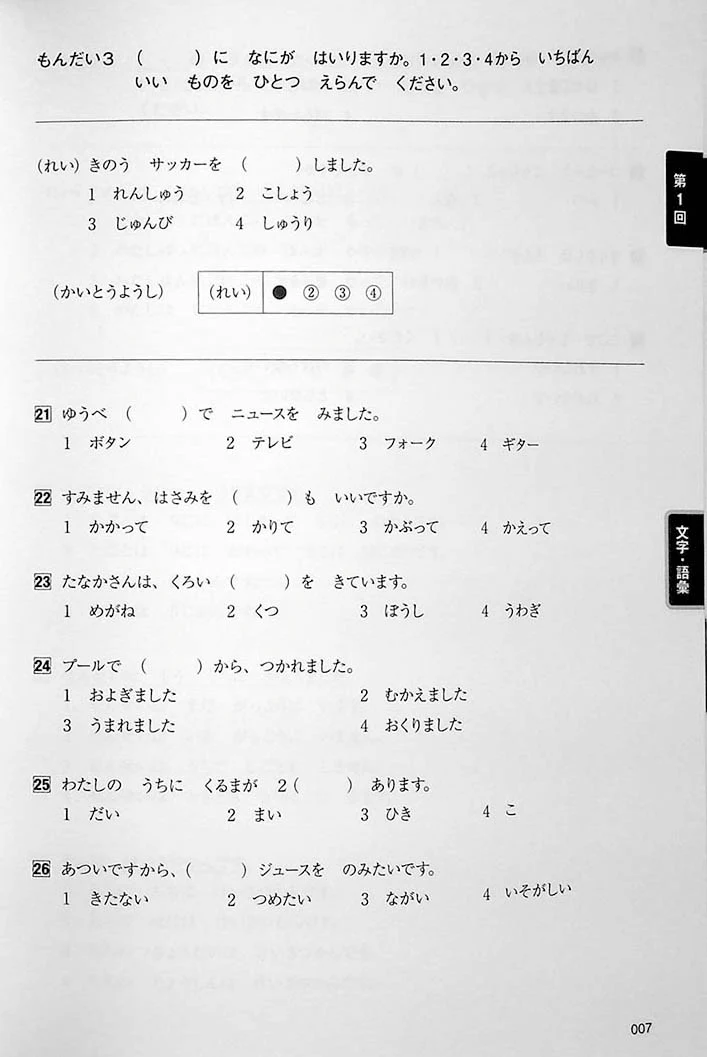 もんだい3　(　　　)に　なにが　はいりますか。1・2・3・4から　いちばん
いい　ものを　ひとつ　えらんで　ください。
(れい) きのう　サッカーを　(　　　) しました。
1　れんしゅう　　2　こしょう
3　じゅんび　　4　しゅうり
(かいとうようし)　(れい)　●　②　③　④
第1回
21 ゆうべ　(　　　) で　ニュースを　みました。
1　ボタン　　2　テレビ　　3　フォーク　　4　ギター
22 すみません、はさみを　(　　　) も　いいですか。
1　かかって　　2　かりて　　3　かぶって　　4　かえって
文字・語彙
23 たなかさんは、くろい　(　　　) を　きています。
1　めがね　　2　くつ　　3　ぼうし　　4　うわぎ
24 プールで　(　　　) から、つかれました。
1　およぎました　　2　むかえました
3　うまれました　　4　おくりました
25 わたしの　うちに　くるまが　2 (　　　) あります。
1　だい　　2　まい　　3　ひき　　4　こ
26 あついですから、(　　　) ジュースを　のみたいです。
1　きたない　　2　つめたい　　3　ながい　　4　いそがしい
007